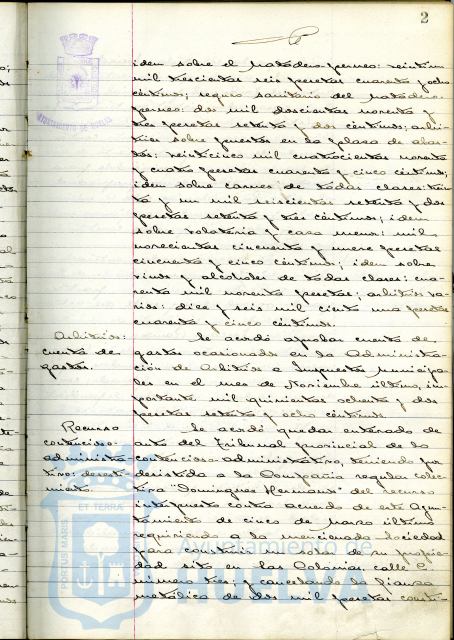 2
AYUNTAMIENTO DE HUELVA
idem sobre el matadero perneo: veintiun
mil trescientas seis pesetas cuarenta y ocho
céntimos; seguro sanitario del matadero
perneo: dos mil doscientas noventa y
tres pesetas setenta y dos céntimos; arbi-
trios sobre puestos en la plaza de abas-
tos: veinticinco mil cuatrocientas noventa
y cuatro pesetas cuarenta y cinco céntimos;
idem sobre carnes de todas clases: trein-
ta y un mil seiscientas setenta y dos
pesetas setenta y tres céntimos; idem
sobre volateria y caza menor: mil
novecientas cincuenta y nueve pesetas
cincuenta y cinco céntimos; idem sobre
vinos y alcoholes de todas clases: cua-
renta mil noventa pesetas; arbitrios va-
rios: diez y seis mil ciento una pesetas
cuarenta y cinco céntimos.
Arbitrios:
cuenta de
gastos.
Se acordó aprobar cuenta de
gastos ocasionados en la Administra-
ción de Arbitrios e Impuestos municipa-
les en el mes de Noviembre último, im-
portante mil quinientas ochenta y dos
pesetas setenta y ocho céntimos.
Recurso
contencioso-
administra-
tivo: desesti-
miento.
Se acordó quedar enterado de
auto del Tribunal provincial de lo
contencioso administrativo, teniendo por
desistida a la Compañia regular colec-
tiva "Dominguez Hermanos" del recurso
interpuesto contra acuerdo de este Ayun-
tamiento de cinco de Marzo último
requiriendo a la mencionada Sociedad
para construir un solar de su propie-
dad sito en las Colonias, calle C
número tres; y cancelando la fianza
metálica de dos mil pesetas consti-
PORTUS MARIS ET TERRÆ
Ayuntamiento de
HUELVA